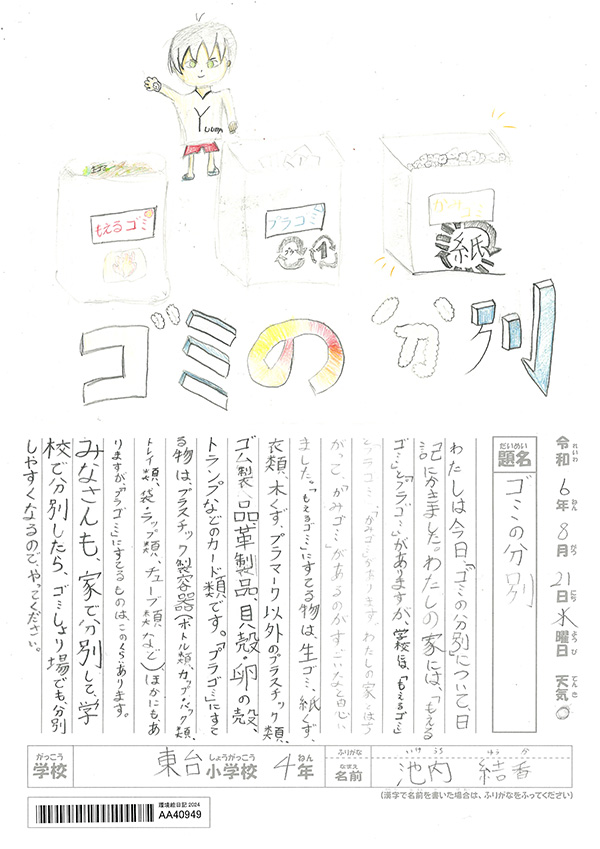 Yuuma
もえるゴミ
プラゴミ
プラ
1
かみゴミ
紙
ゴミの分別
令和6年8月21日水曜日 天気
れいわ ねん がつ にち ようび てんき
だいめい
題名
ゴミの分別
わたしは今日「ゴミの分別」について、日
記にかきました。わたしの家には、「もえる
ゴミ」と「プラゴミ」がありますが、学校は、「もえるゴミ」
「プラゴミ」「かみゴミ」があります。わたしの家とはち
がって「かみゴミ」があるのがすごいなと思い
ました。「もえるゴミ」にすてる物は、生ゴミ、紙くず、
衣類、木くず、プラマーク以外のプラスチック類、
ゴム製品、革製品、貝殻・卵の殻、
トランプなどのカード類です。「プラゴミ」にすて
る物は、プラスチック製容器(ボトル類、カップ、パック類、
トレイ類、袋・ラップ類、チューブ類など)ほかにも、あ
りますが、「プラゴミ」にすてるものは、このくらいあります。
みなさんも、家で分別して、学
校で分別したら、ゴミしょり場でも、分別
しやすくなるので、やってください。
がっこう
学校
東台
しょうがっこう
小学校
4
ねん
年
ふりがな
なまえ
名前
いけ うち ゆう か
池内 結香
(漢字で名前を書いた場合は、ふりがなをふってください)
環境絵日記2024
AA40949